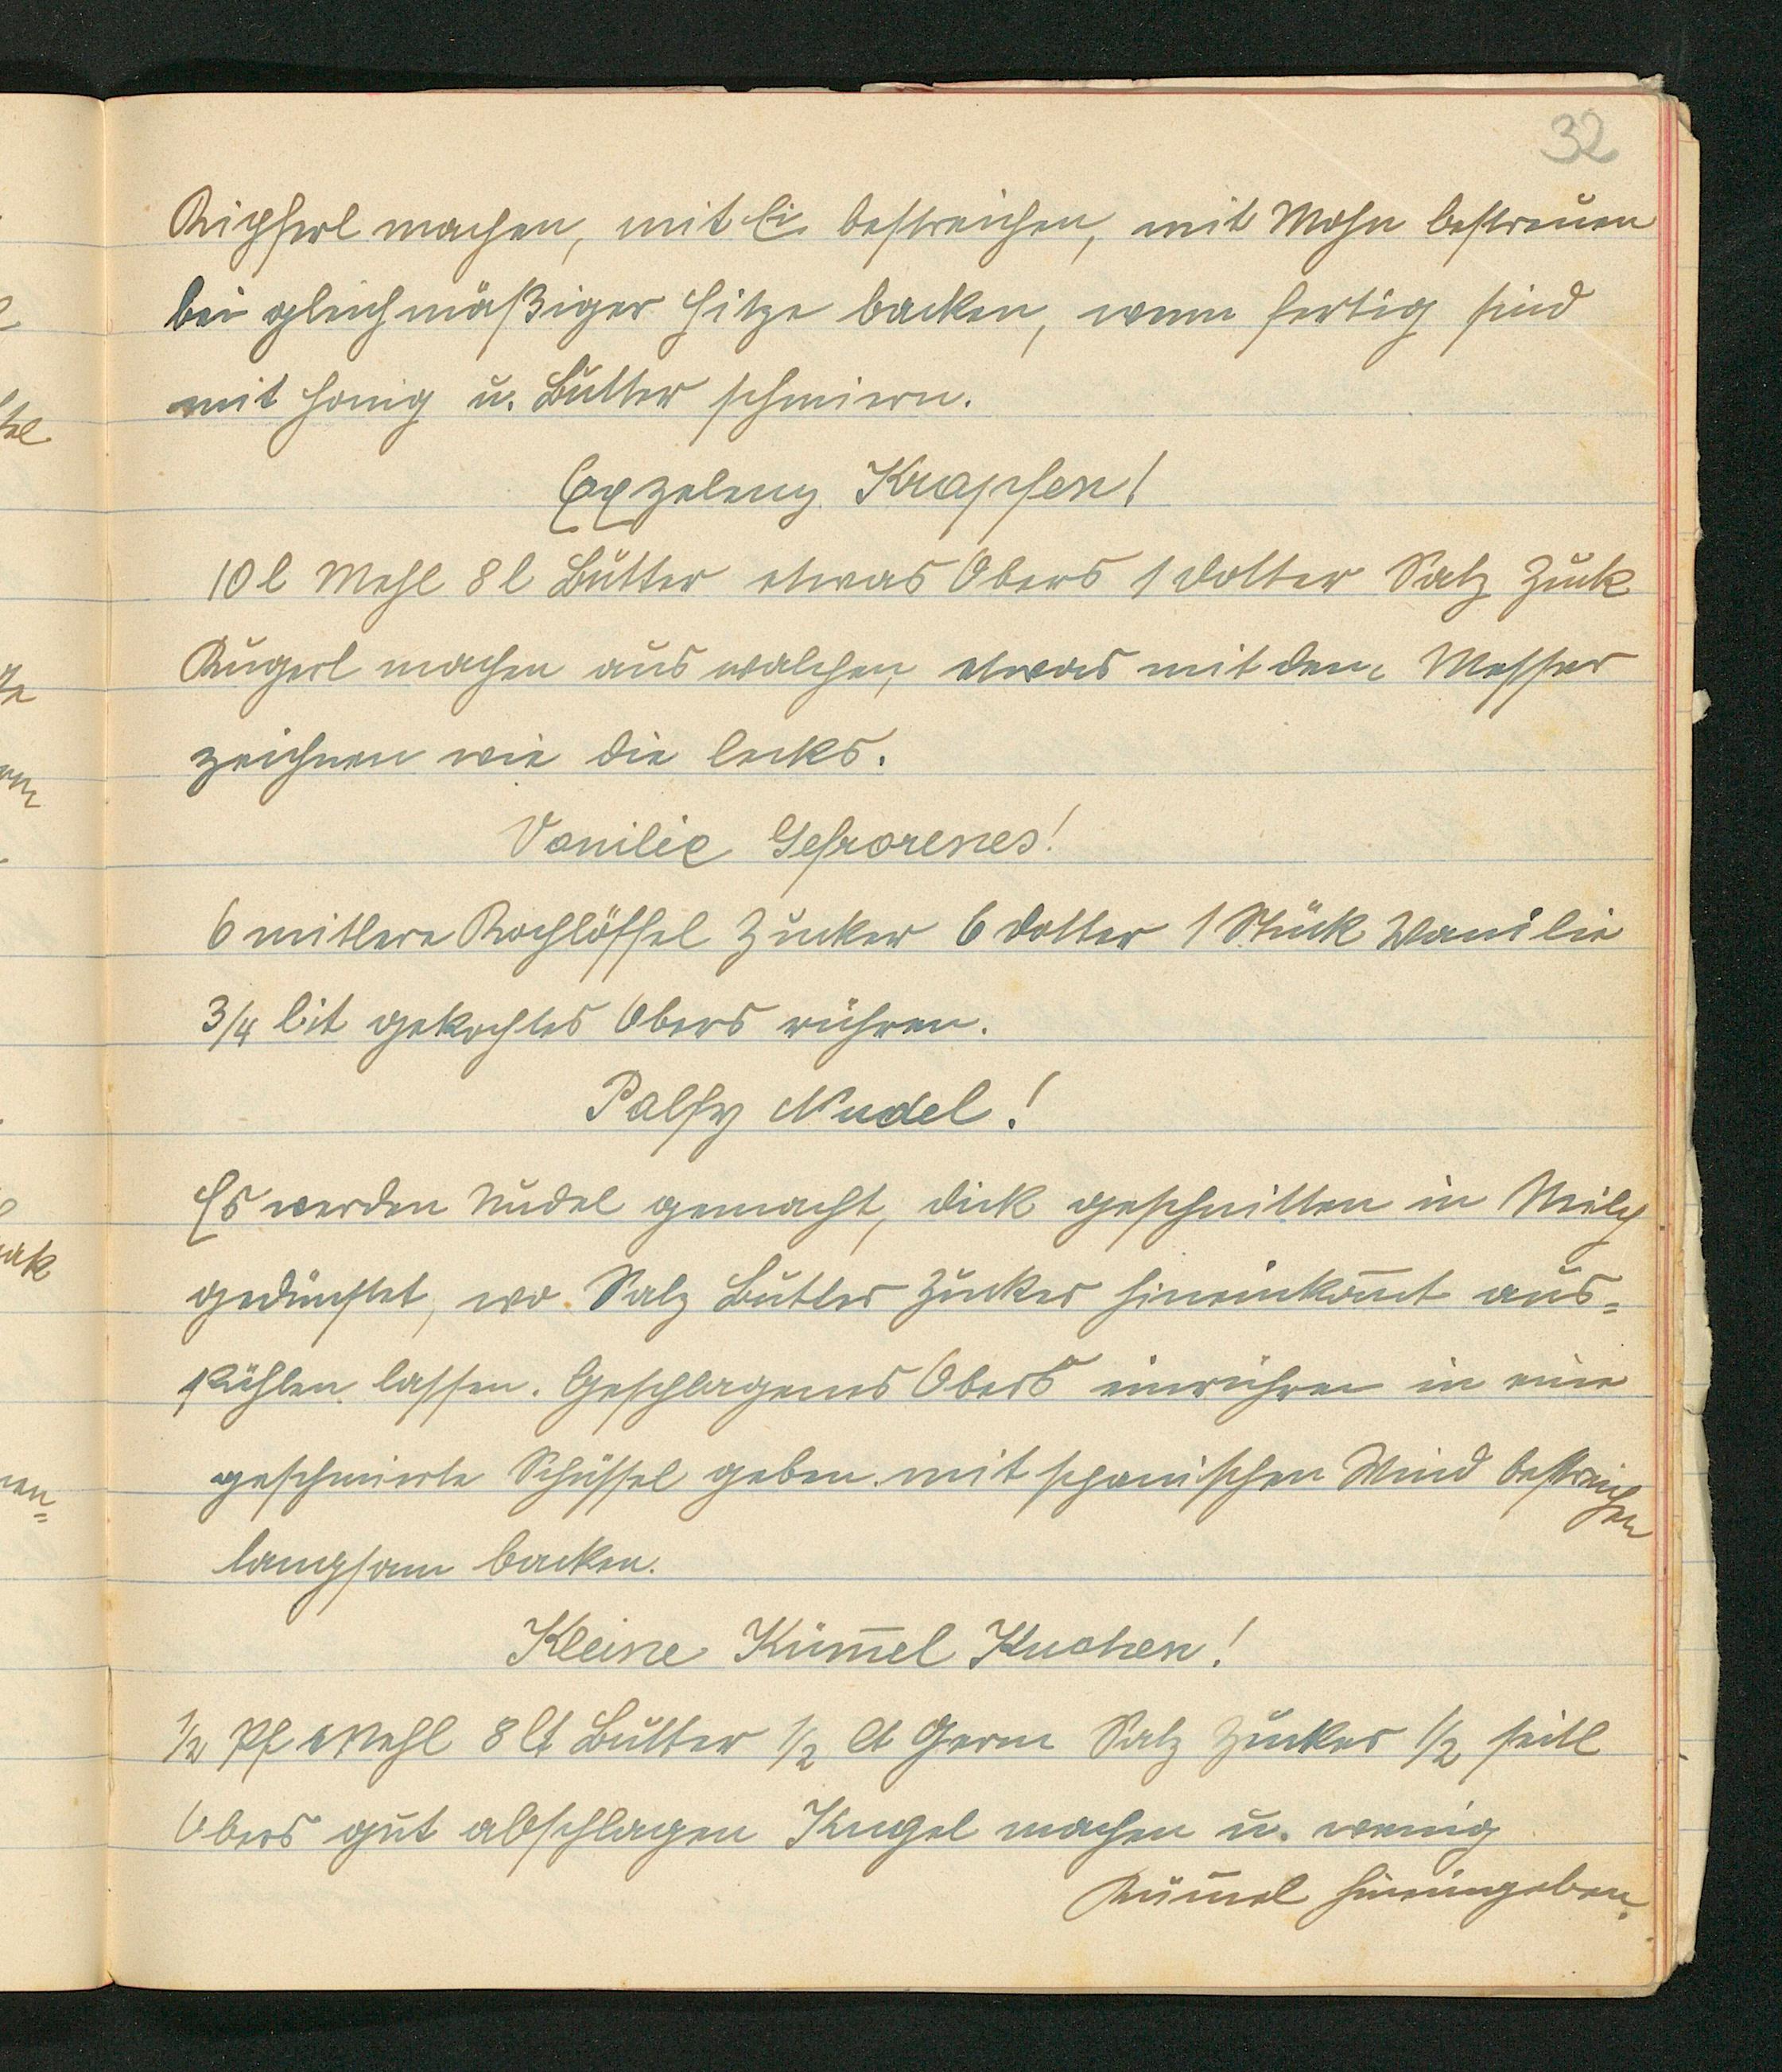 32
Kipferl machen, mit Ei bestreichen, mit Mohn bestreuen
bei gleichmäßiger Hitze backen, wenn fertig sind
mit Honig u. Butter schmiern.
Exzelenz Krapfen!
10 l Mehl 8 l Butter etwas Obers 1 Dotter Salz Zuck
Kugerl machen aus walchen, etwas mit dem Messer
zeichnen wie die lecks.
Vanilie Gefrorenes!
6 mitlere Kochlöffel Zucker 6 Dotter 1 Stück Wanilie
3/4 lit gekochtes Obers rühren.
Palfy Nudel!
Es werden Nudel gemacht, dick geschnitten in Milch
gedünstet, wo Salz Butter Zucker hineinkom̅t aus=
kühlen lassen. Geschlagenes Obers einrühren in eine
geschmierte Schüssel geben mit spanischen Wind bestreichen
langsam backen.
Kleine Küm̅el Kuchen!
1/2 Pf Mehl 8 lt Butter 1/2 lt Germ Salz Zucker 1/2 seitl
Obers gut abschlagen Kugel machen u. wenig
Küm̅el hineingeben.
tel
rm
nen=